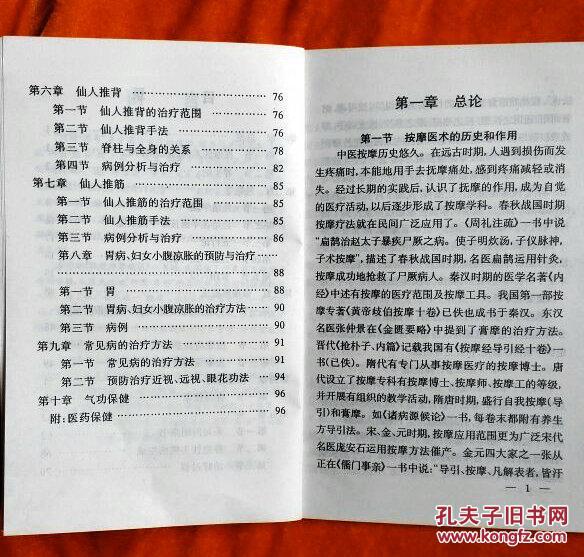 第六章 仙人推背 …………………… 76
第一节 仙人推背的治疗范围 …………… 76
第二节 仙人推背手法 …………………… 76
第三节 脊柱与全身的关系 ……………… 78
第四节 病例分析与治疗 ………………… 82
第七章 仙人推筋 …………………… 85
第一节 仙人推筋的治疗范围 …………… 85
第二节 仙人推筋手法 …………………… 85
第三节 病例分析与治疗 ………………… 86
第八章 胃病、妇女小腹凉胀的预防与治疗 ……
…………………… 88
第一节 胃 …………………… 88
第二节 胃病、妇女小腹凉胀的治疗方法 …… 90
第三节 病例 …………………… 90
第九章 常见病的治疗方法 ……………… 91
第一节 常见病的治疗方法 ……………… 91
第二节 预防治疗近视、远视、眼花功法 …… 94
第十章 气功保健 …………………… 96
附:医药保健 …………………… 96
第一章 总论
第一节 按摩医术的历史和作用
中医按摩历史悠久。在远古时期,人遇到损伤而发
生疼痛时,本能地用手去抚摩痛处,感到疼痛减轻或消
失。经过长期的实践后,认识了抚摩的作用,成为自觉
的医疗活动,以后逐步形成了按摩学科。春秋战国时期
按摩疗法就在民间广泛应用了。《周礼注疏》一书中说
“扁鹊治赵太子暴疾尸厥之病。使子明炊汤,子仪脉神,
子术按摩”,描述了春秋战国时期,名医扁鹊运用针灸,
按摩成功地抢救了尸厥病人。秦汉时期的医学名著《内
经》中述有按摩的医疗范围及按摩工具。我国第一部按
摩专著《黄帝歧伯按摩十卷》已佚也成书于秦汉。东汉
名医张仲景在《金匮要略》中提到了膏摩的治疗方法。
晋代《抢朴子、内篇》记载我国有《按摩经导引经十卷》一
书(已佚)。隋代有专门从事按摩医疗的按摩博士。唐
代设立了按摩专科有按摩博士、按摩师、按摩工的等级,
并开展有组织的教学活动,隋唐时期,盛行自我按摩(导
引)和膏摩。如《诸病源候论》一书,每卷末都附有养生
方导引法。宋、金、元时期,按摩应用范围更为广泛宋代
名医庞安石运用按摩方法催产。金元四大家之一张从
正在《儒门事亲》一书中说:“导引、按摩、凡解表者,皆汗
— 1 —
孔夫子旧书网
www.kongfz.com